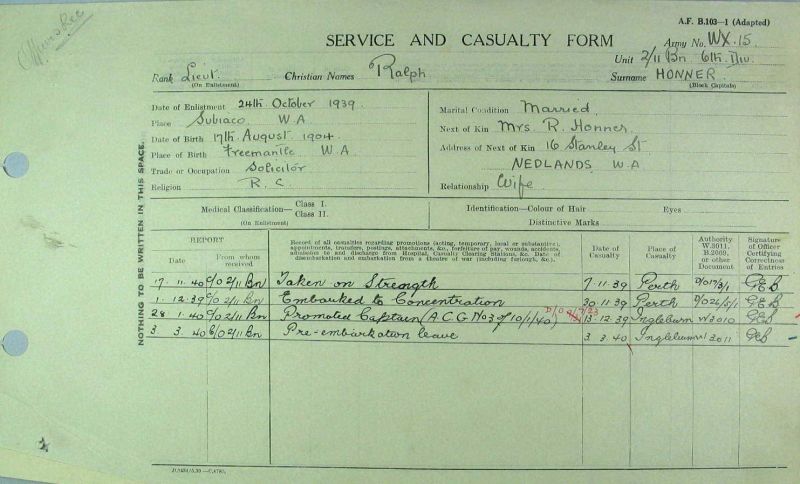 Officers Rec
A.F. B.103—1 (Adapted)
SERVICE AND CASUALTY FORM
Army No. WX.15.
Unit 2/11 Bn 6th Div.
Rank Lieut. Christian Names Ralph Surname HONNER.
(On Enlistment) (Block Capitals)
NOTHING TO BE WRITTEN IN THIS SPACE.
Date of Enlistment 24th October 1939.
Place Subiaco W.A
Date of Birth 17th August 1904.
Place of Birth Freemantle W.A
Trade or Occupation Solicitor
Religion R.C.
Marital Condition Married.
Next of Kin Mrs R. Honner.
Address of Next of Kin 16 Stanley St
NEDLANDS W.A
Relationship Wife
Medical Classification— Class I.
Class II.
(On Enlistment)
Identification—Colour of Hair Eyes
Distinctive Marks
REPORT
Date From whom received
Record of all casualties regarding promotions (acting, temporary, local or substantive), appointments, transfers, postings, attachments, &c., forfeiture of pay, wounds, accidents, admission to and discharge from Hospital, Casualty Clearing Stations, &c. Date of disembarkation and embarkation from a theatre of war (including furlough, &c.).
Date of Casualty
Place of Casualty
Authority W.3011, B.2069, or other Document
Signature of Officer Certifying Correctness of Entries
17.11.40 C/O 2/11 Bn Taken on Strength 7.11.39 Perth GEB
1.12.39 C/O 2/11 Bn Embarked to Concentration 30.11.39 Perth GEB
28.1.40 C/O 2/11 Bn Promoted Captain (A.C.G No 3 of 10/1/40) 13.12.39 Ingleburn W3010 GEB
3.3.40 C/O 2/11 Bn Pre-embarkation leave 3.3.40 Ingleburn W3011 GEB